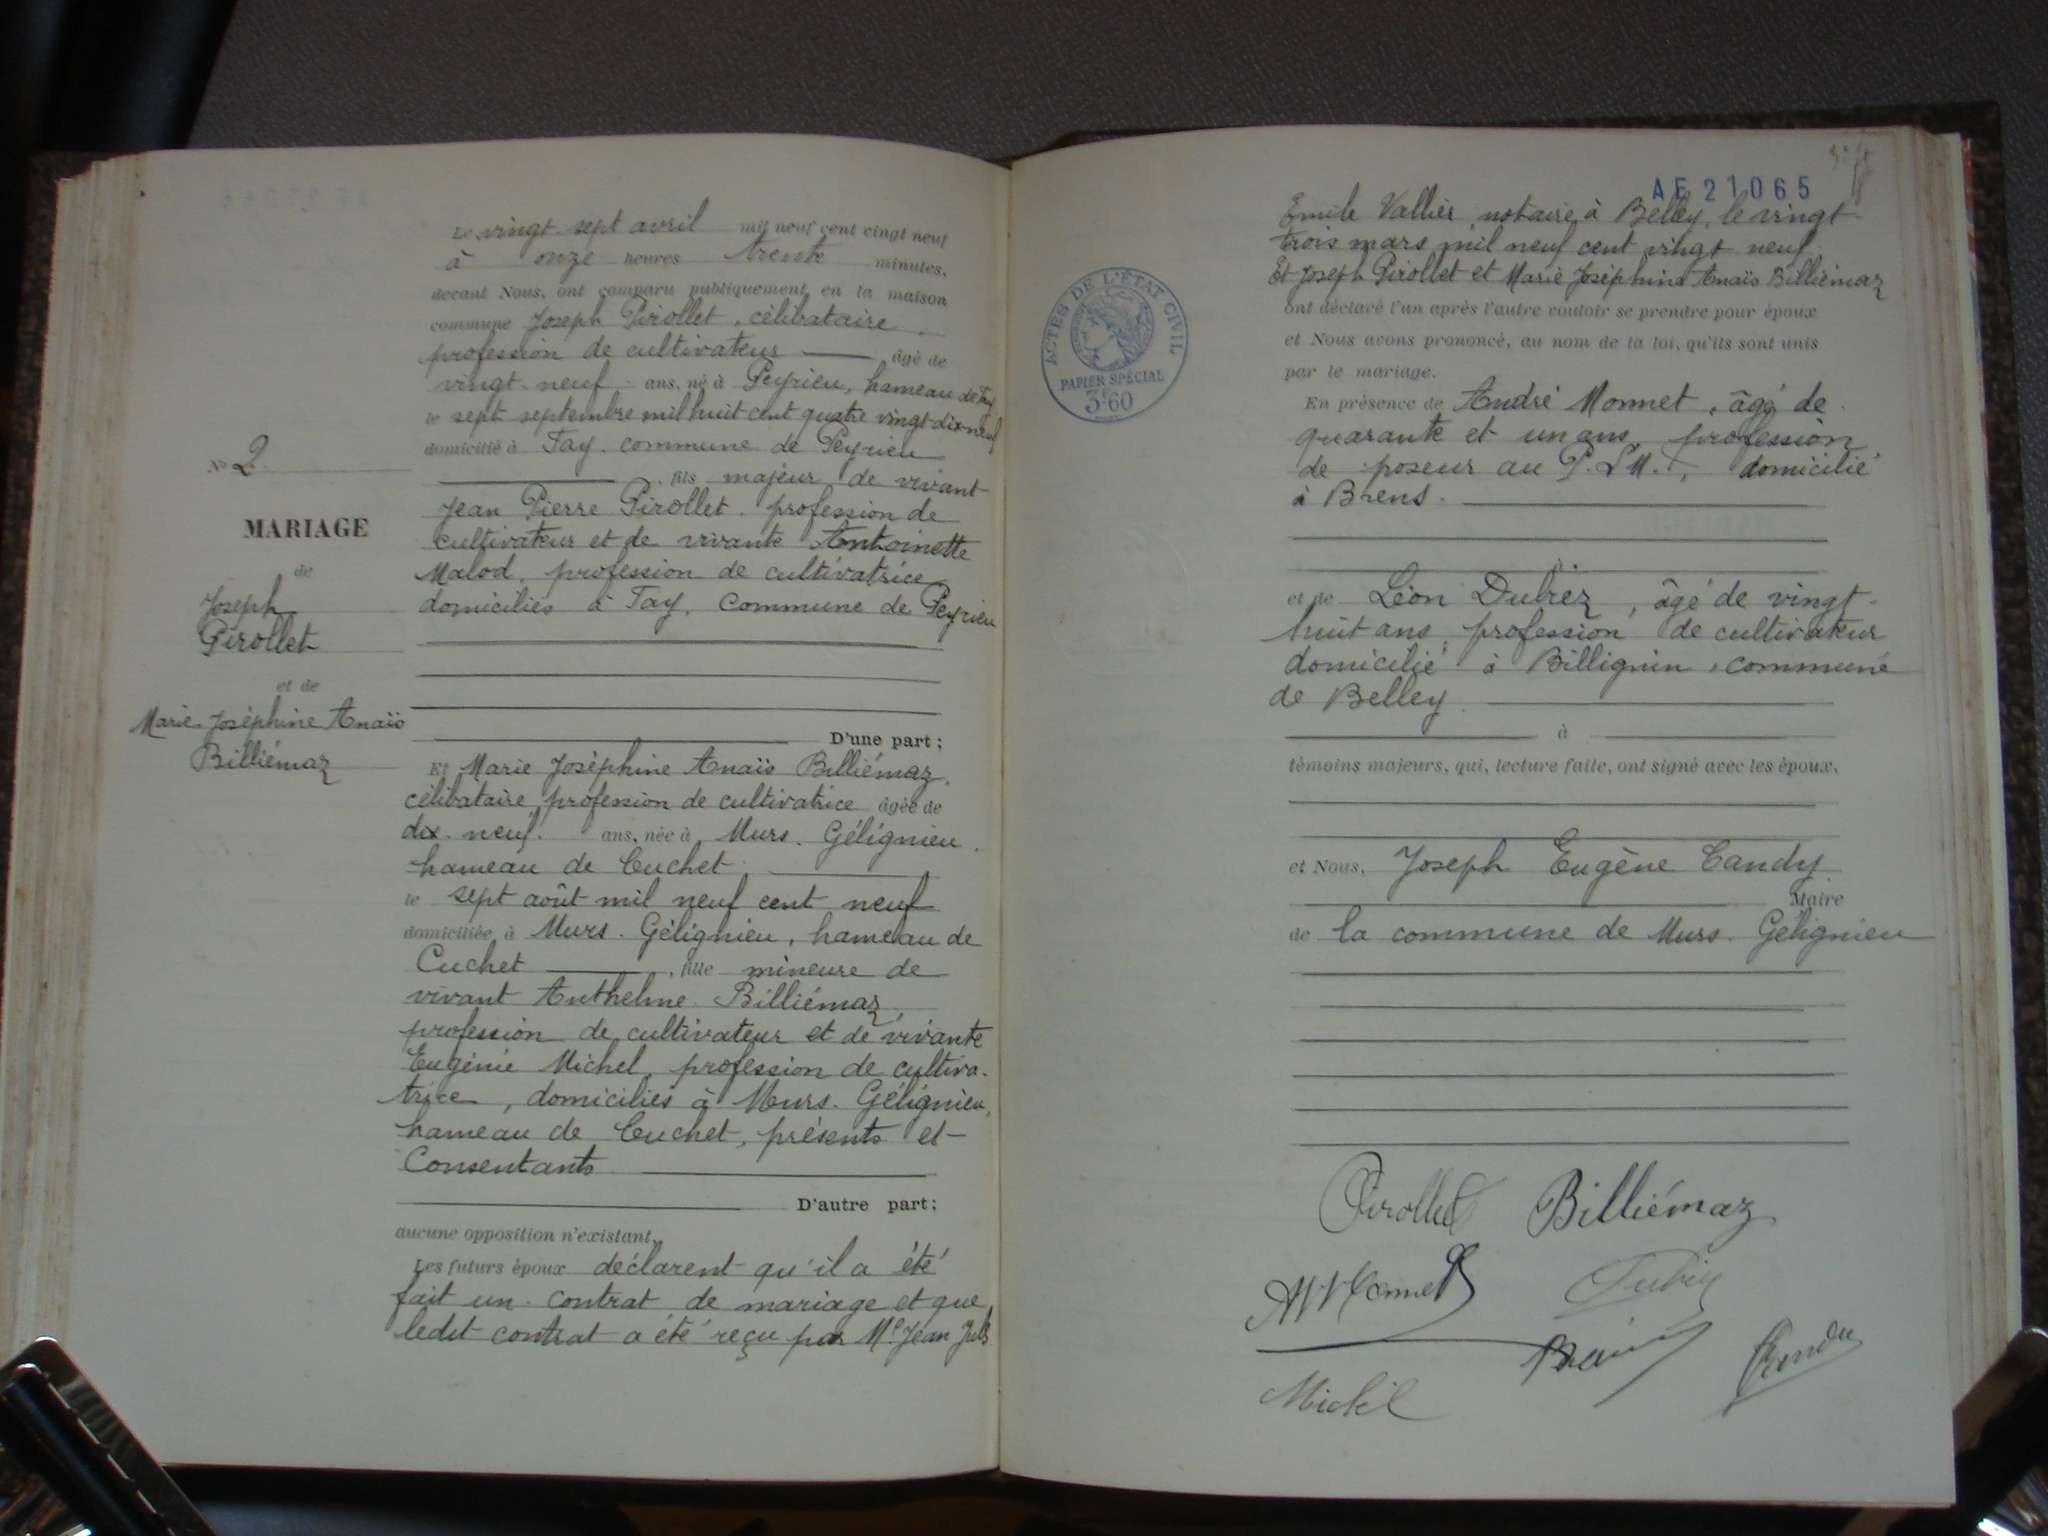 Le vingt sept avril mil neuf cent vingt neuf
à onze heures trente minutes,
devant Nous, ont comparu publiquement en la maison
commune Joseph Pirollet, célibataire
profession de cultivateur âgé de
vingt-neuf ans, né à Peyrieu, hameau de Fay
le sept septembre mil huit cent quatre vingt dix-neuf
domicilié à Fay, commune de Peyrieu
fils majeur de vivant
Jean Pierre Pirollet, profession de
cultivateur et de vivante Antoinette
Malod, profession de cultivatrice
domiciliés à Fay, commune de Peyrieu
N° 2
MARIAGE
de
Joseph
Pirollet
et de
Marie Joséphine Anaïs
Billiémaz
D'une part;
Et Marie Joséphine Anaïs Billiémaz,
célibataire, profession de cultivatrice âgée de
dix-neuf ans, née à Murs-Gélignieu,
hameau de Cuchet
le sept août mil neuf cent neuf
domiciliée à Murs-Gélignieu, hameau de
Cuchet, fille mineure de
vivant Anthelme Billiémaz,
profession de cultivateur et de vivante
Eugénie Michel, profession de cultiva-
trice, domiciliés à Murs-Gélignieu,
hameau de Cuchet, présents et
Consentants
D'autre part;
aucune opposition n'existant.
Les futurs époux déclarent qu'il a été
fait un contrat de mariage et que
ledit contrat a été reçu par Me Jean Jules
AF 21065
Emile Vallier notaire à Belley, le vingt
trois mars mil neuf cent vingt neuf.
Et Joseph Pirollet et Marie Joséphine Anaïs Billiémaz
ont déclaré l'un après l'autre vouloir se prendre pour époux
et Nous avons prononcé, au nom de la loi, qu'ils sont unis
par le mariage.
ACTES DE L'ÉTAT CIVIL
PAPIER SPÉCIAL
3F60
En présence de André Monnet, âgé de
quarante et un ans, profession
de poseur au P.L.M., domicilié
à Brens.
et de Léon Dubrez, âgé de vingt-
huit ans, profession de cultivateur
domicilié à Billignin, commune
de Belley
à
témoins majeurs, qui, lecture faite, ont signé avec les époux,
et Nous, Joseph Eugène Candy
Maire
de la commune de Murs-Gélignieu
Pirollet Billiémaz
Monnet
Michel